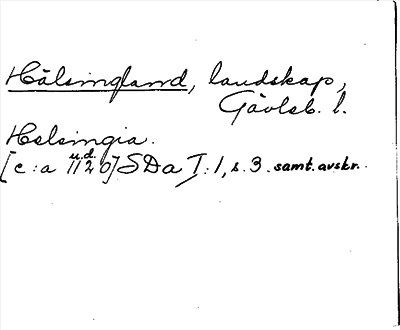 Hälsingland, landskap,
Gävleb. l.
Helsingia.
[c:a u.d. 1120] SDa I:1, s. 3. samt. avskr.